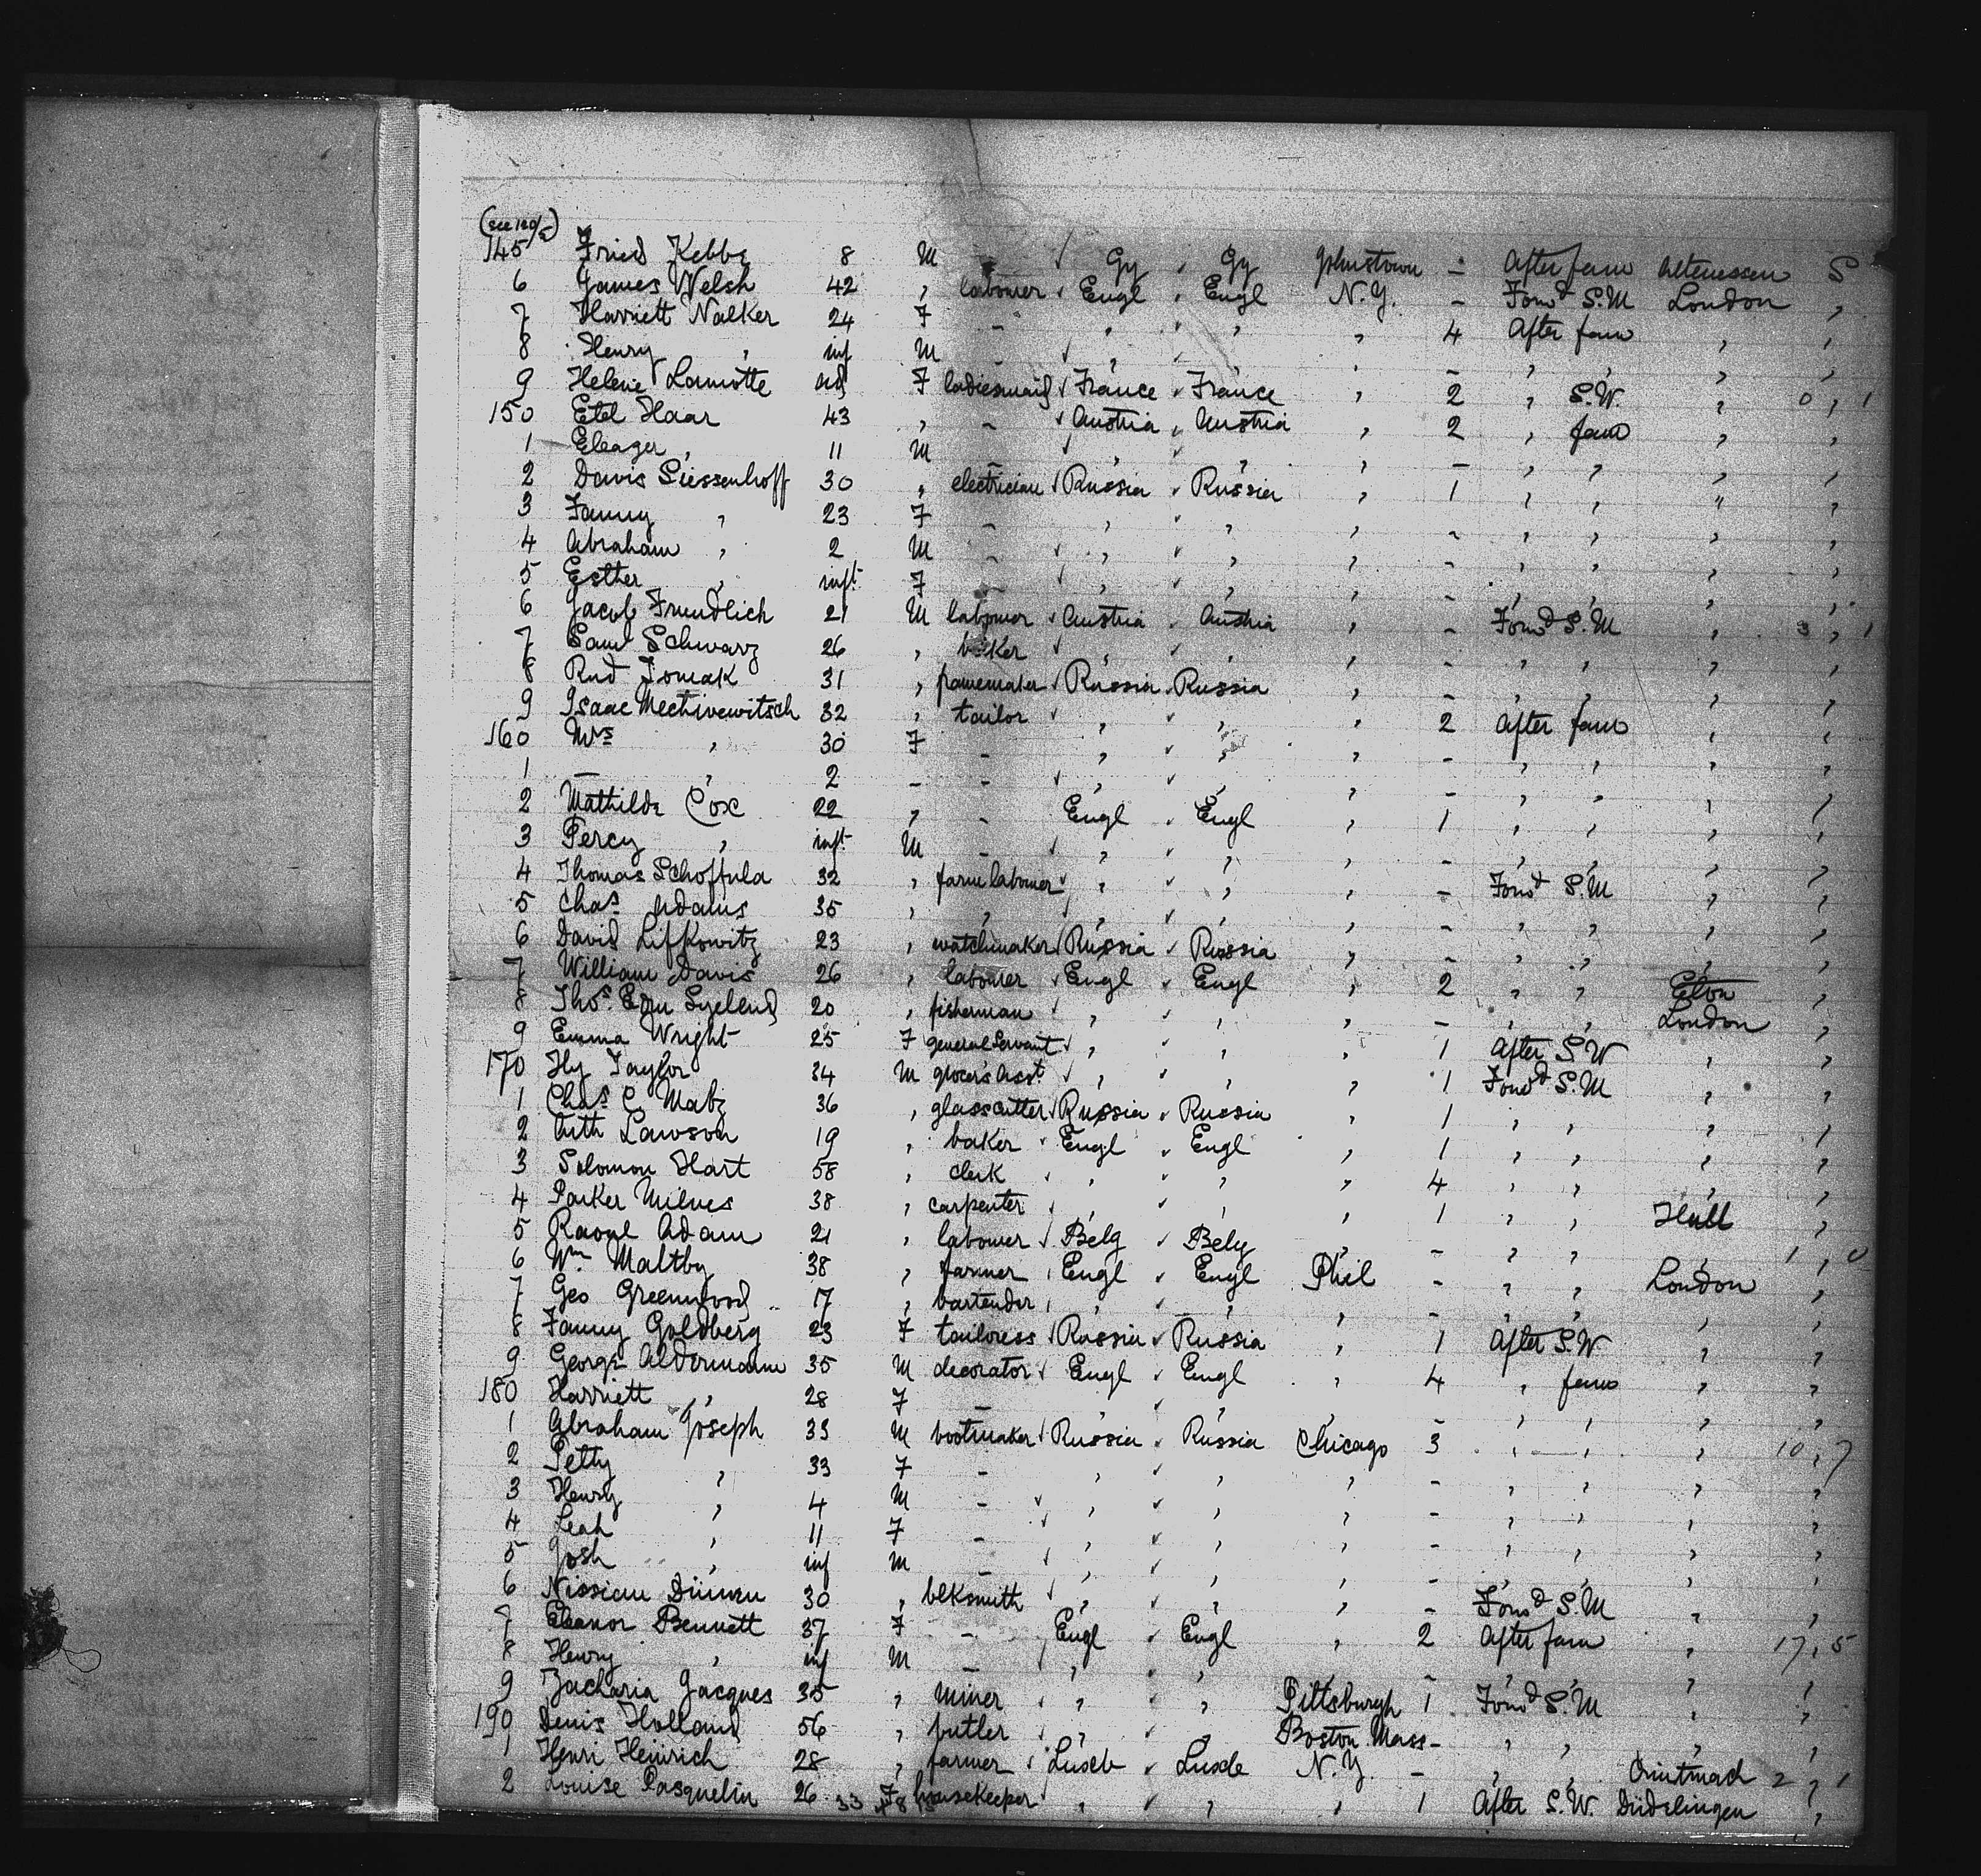 (see 120/5)
145 Fried Kebbe 8 M Gy Gy Johnstown - After fam Altenessen S
6 James Welsh 42 , labourer Engl Engl N.Y. - Forwd S.M London ,
7 Harriett Walker 24 F - , , , 4 After fam , ,
8 Henry , inf M - , , , - , , , ,
9 Helene Lamotte ad F ladiesmaid France France , 2 , S.W. , 0 , 1
150 Etel Haar 43 , - Austria Austria , 2 , fam , ,
1 Eleazer , 11 M - , , , - , , , ,
2 Davis Siessenhoff 30 , electrician Russia Russia , 1 , , " ,
3 Fanny , 23 F - , , , - , , , ,
4 Abraham , 2 M - , , , - , , , ,
5 Esther , inft F - , , , - , , , ,
6 Jacob Freundlich 21 M labourer Austria Austria , - Forwd S.M , 3 , 1
7 Saml Schwarz 26 , baker , , , - , , , ,
8 Rud Tomak 31 , framemaker Russia Russia , - , , , ,
9 Isaac Mechivewitsch 32 , tailor , , , 2 After fam , ,
160 Mrs , 30 F - , , , - , , , ,
1 - , 2 - - , , , - , , , ,
2 Mathilda Cox 22 , - Engl Engl , 1 , , , ,
3 Percy , inft M - , , , - , , , ,
4 Thomas Schoffula 32 , farm labourer , , , - Forwd S.M , ,
5 Chas Adams 35 , , , , , - , , , ,
6 David Lifkowitz 23 , watchmaker Russia Russia , - , , , ,
7 William Davis 26 , labourer Engl Engl , 2 , , Eton ,
8 Thos Edm 20 , fisherman , , , - , , London ,
9 Emma Wright 25 F general Servant , , , 1 After S.W , ,
170 Hy Taylor 34 M grocer's Asst , , , 1 Forwd S.M , ,
1 Chas C Matz 36 , glasscutter Russia Russia , 1 , , , ,
2 Arth Lawson 19 , baker Engl Engl , 1 , , , ,
3 Solomon Hart 58 , clerk , , , 4 , , , ,
4 Parker Milnes 38 , carpenter , , , 1 , , Hull ,
5 Raoul Adam 21 , labourer Belg Belg , - , , , 1 , 0
6 Wm Maltby 38 , farmer Engl Engl Phil - , , London ,
7 Geo Greenwood 17 , bartender , , , - , , , ,
8 Fanny Goldberg 23 F tailoress Russia Russia , 1 After S.W. , ,
9 George Aldermann 35 M decorator Engl Engl , 4 , fam , ,
180 Harriett , 28 F - , , , - , , , ,
1 Abraham Joseph 33 M bootmaker Russia Russia Chicago 3 , , , 10 , 7
2 Petty , 33 F - , , , - , , , ,
3 Henry , 4 M - , , , - , , , ,
4 Leah , 11 F - , , , - , , , ,
5 Josh , inf M - , , , - , , , ,
6 Nissian 30 , blksmith , , , - Forwd S.M , ,
7 Eleanor Bennett 37 F - Engl Engl , 2 After fam , 17 , 5
8 Henry , inf M - , , , - , , , ,
9 Zacharia Jacques 35 , miner , , Pittsburgh 1 Forwd S.M , ,
190 Denis Holland 56 , butler , , Boston Mass - , , , ,
1 Henri Heinrich 28 , farmer Luxb N.Y. - , , 2 , 1
2 Louise Pasquelin 26 F housekeeper , , , 1 After S.W. Düdelingen ,